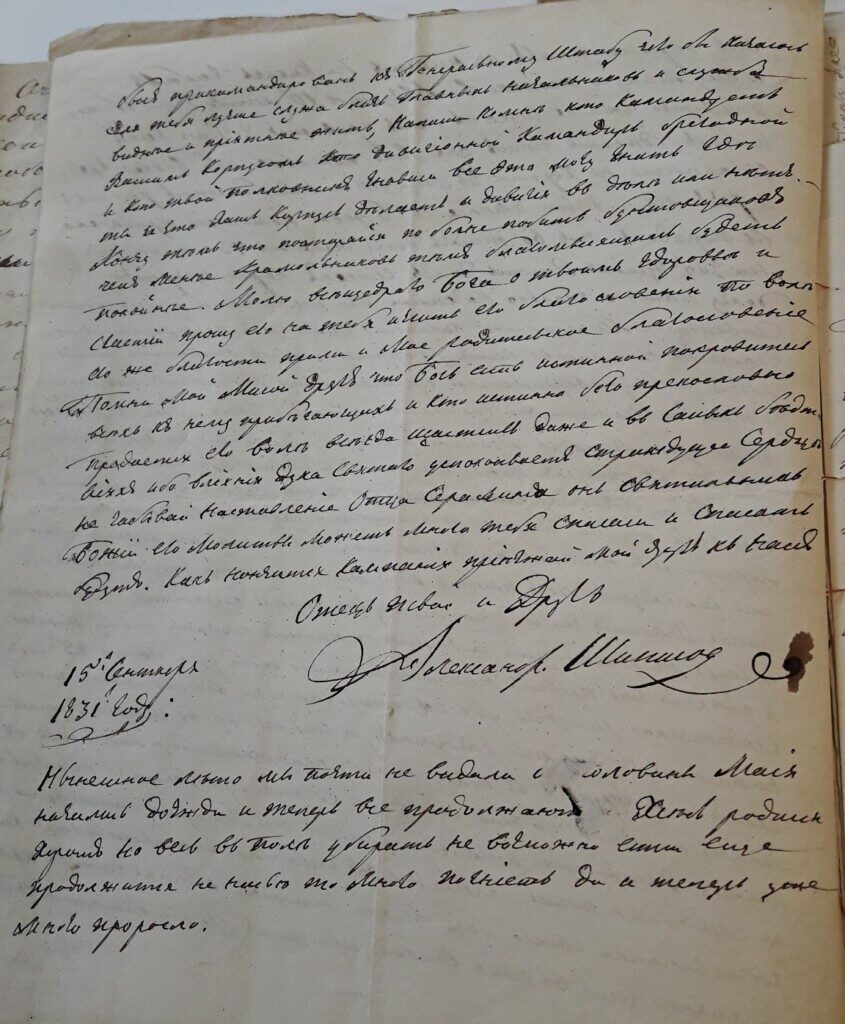 былъ прикамандированъ къ Генеральному Штабу чего бы казалось
для тебя лучше служа близь Главныхъ Начальниковъ и служба
виднее и приятнее жить, Напиши Комнъ кто Командуетъ
Вашимъ Корпусомъ кто дивизионной Командиръ бригадной
и кто твой полковникъ знавши все это могу знать Где
ты и что Вашъ Корпусъ делаетъ и дивизия въ деле или нетъ.
Конец темъ что постарайся по более побить бунтовщиковъ
чемъ менее Крамольниковъ темъ благомыслящимъ будетъ
покойнее. Молю всещедраго Бога о твоемъ здоровье и
счастии прошу его на тебя излить его благословении по воле
его же благости прими и мое родительское благословение
Помни мой милой Другъ что Богъ есть истинной покровитель
всехъ къ нему прибегающихъ и кто истинно безо прекословно
предается его воле всегда щастливъ даже и въ самыхъ бедст
виях ибо влияния духа святаго успокаиваетъ страждущее Сердце
не забывай наставление Отца Серафима онъ святильникъ
Божий его молитвы можетъ много тебя спасли и спасать
будутъ. Какъ кончится кампания приезжай мой другъ къ намъ
Отецъ твой и Другъ
Александр. Шипилов
15го Сентября
1831го Году:
Нынешное лето мы почти не видали с половины Мая
начались дожди и теперь все продолжаютъ Хлебъ родился
хорошъ но весь въ поле убирать не возможно если еще
продолжится ненастью то много погниетъ да и теперь уже
много проросло.